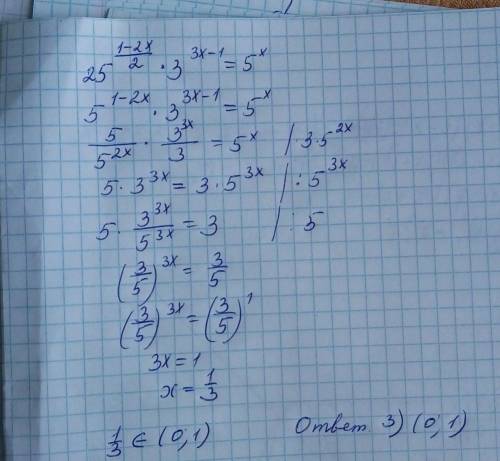 25^((1-2x)/2) · 3^(3x-1) = 5^x
5^(1-2x) · 3^(3x-1) = 5^x
5/5^(2x) · 3^(3x)/3 = 5^x | · 3 · 5^(2x)
5 · 3^(3x) = 3 · 5^(3x) | : 5^(3x)
5 · 3^(3x)/5^(3x) = 3 | : 5
(3/5)^(3x) = 3/5
(3/5)^(3x) = (3/5)^1
3x = 1
x = 1/3
1/3 ∈ (0, 1) Ответ 3) (0, 1)